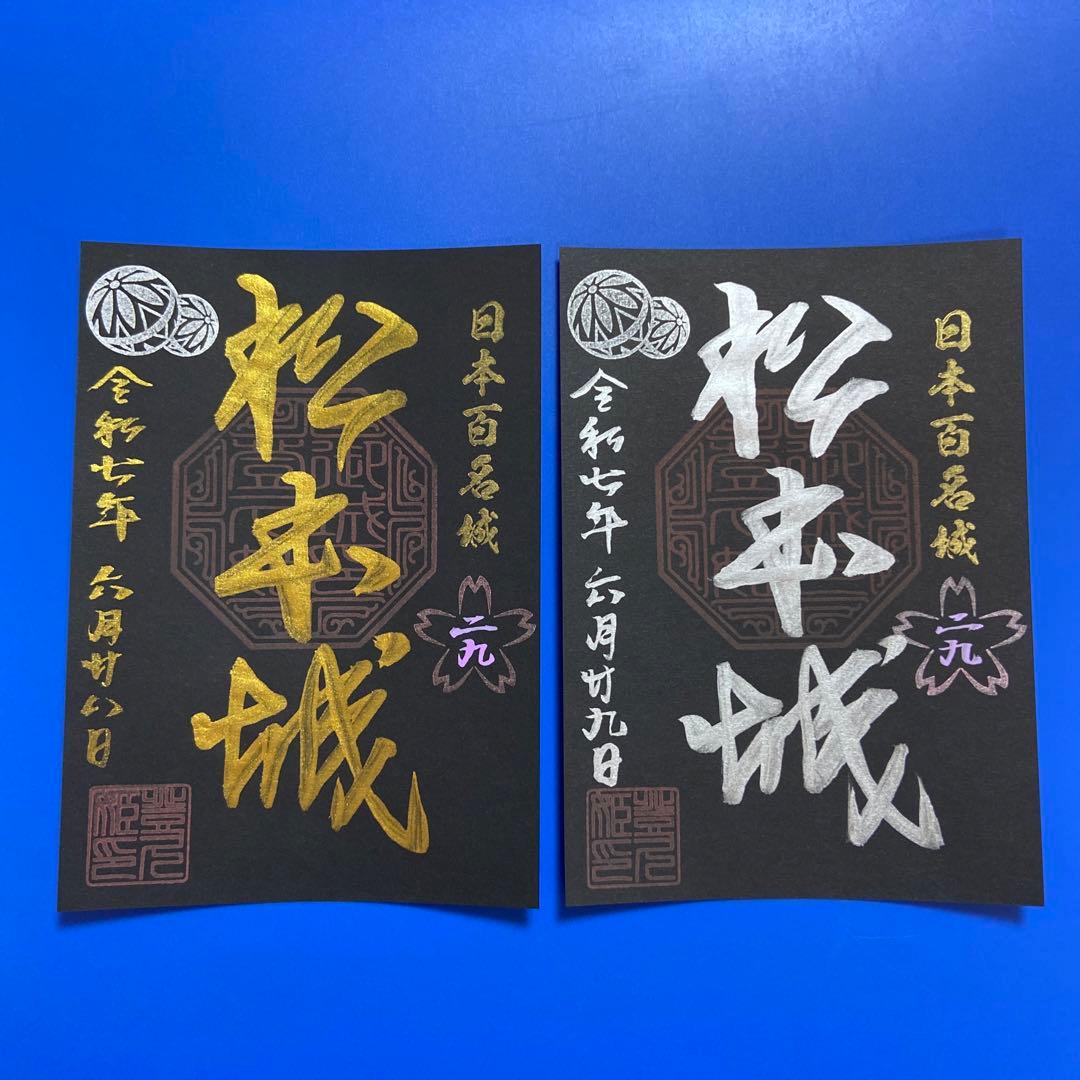 日本百名城
二九
松本城
令和七年 六月廿八日
日本百名城
二九
松本城
令和七年 六月廿九日